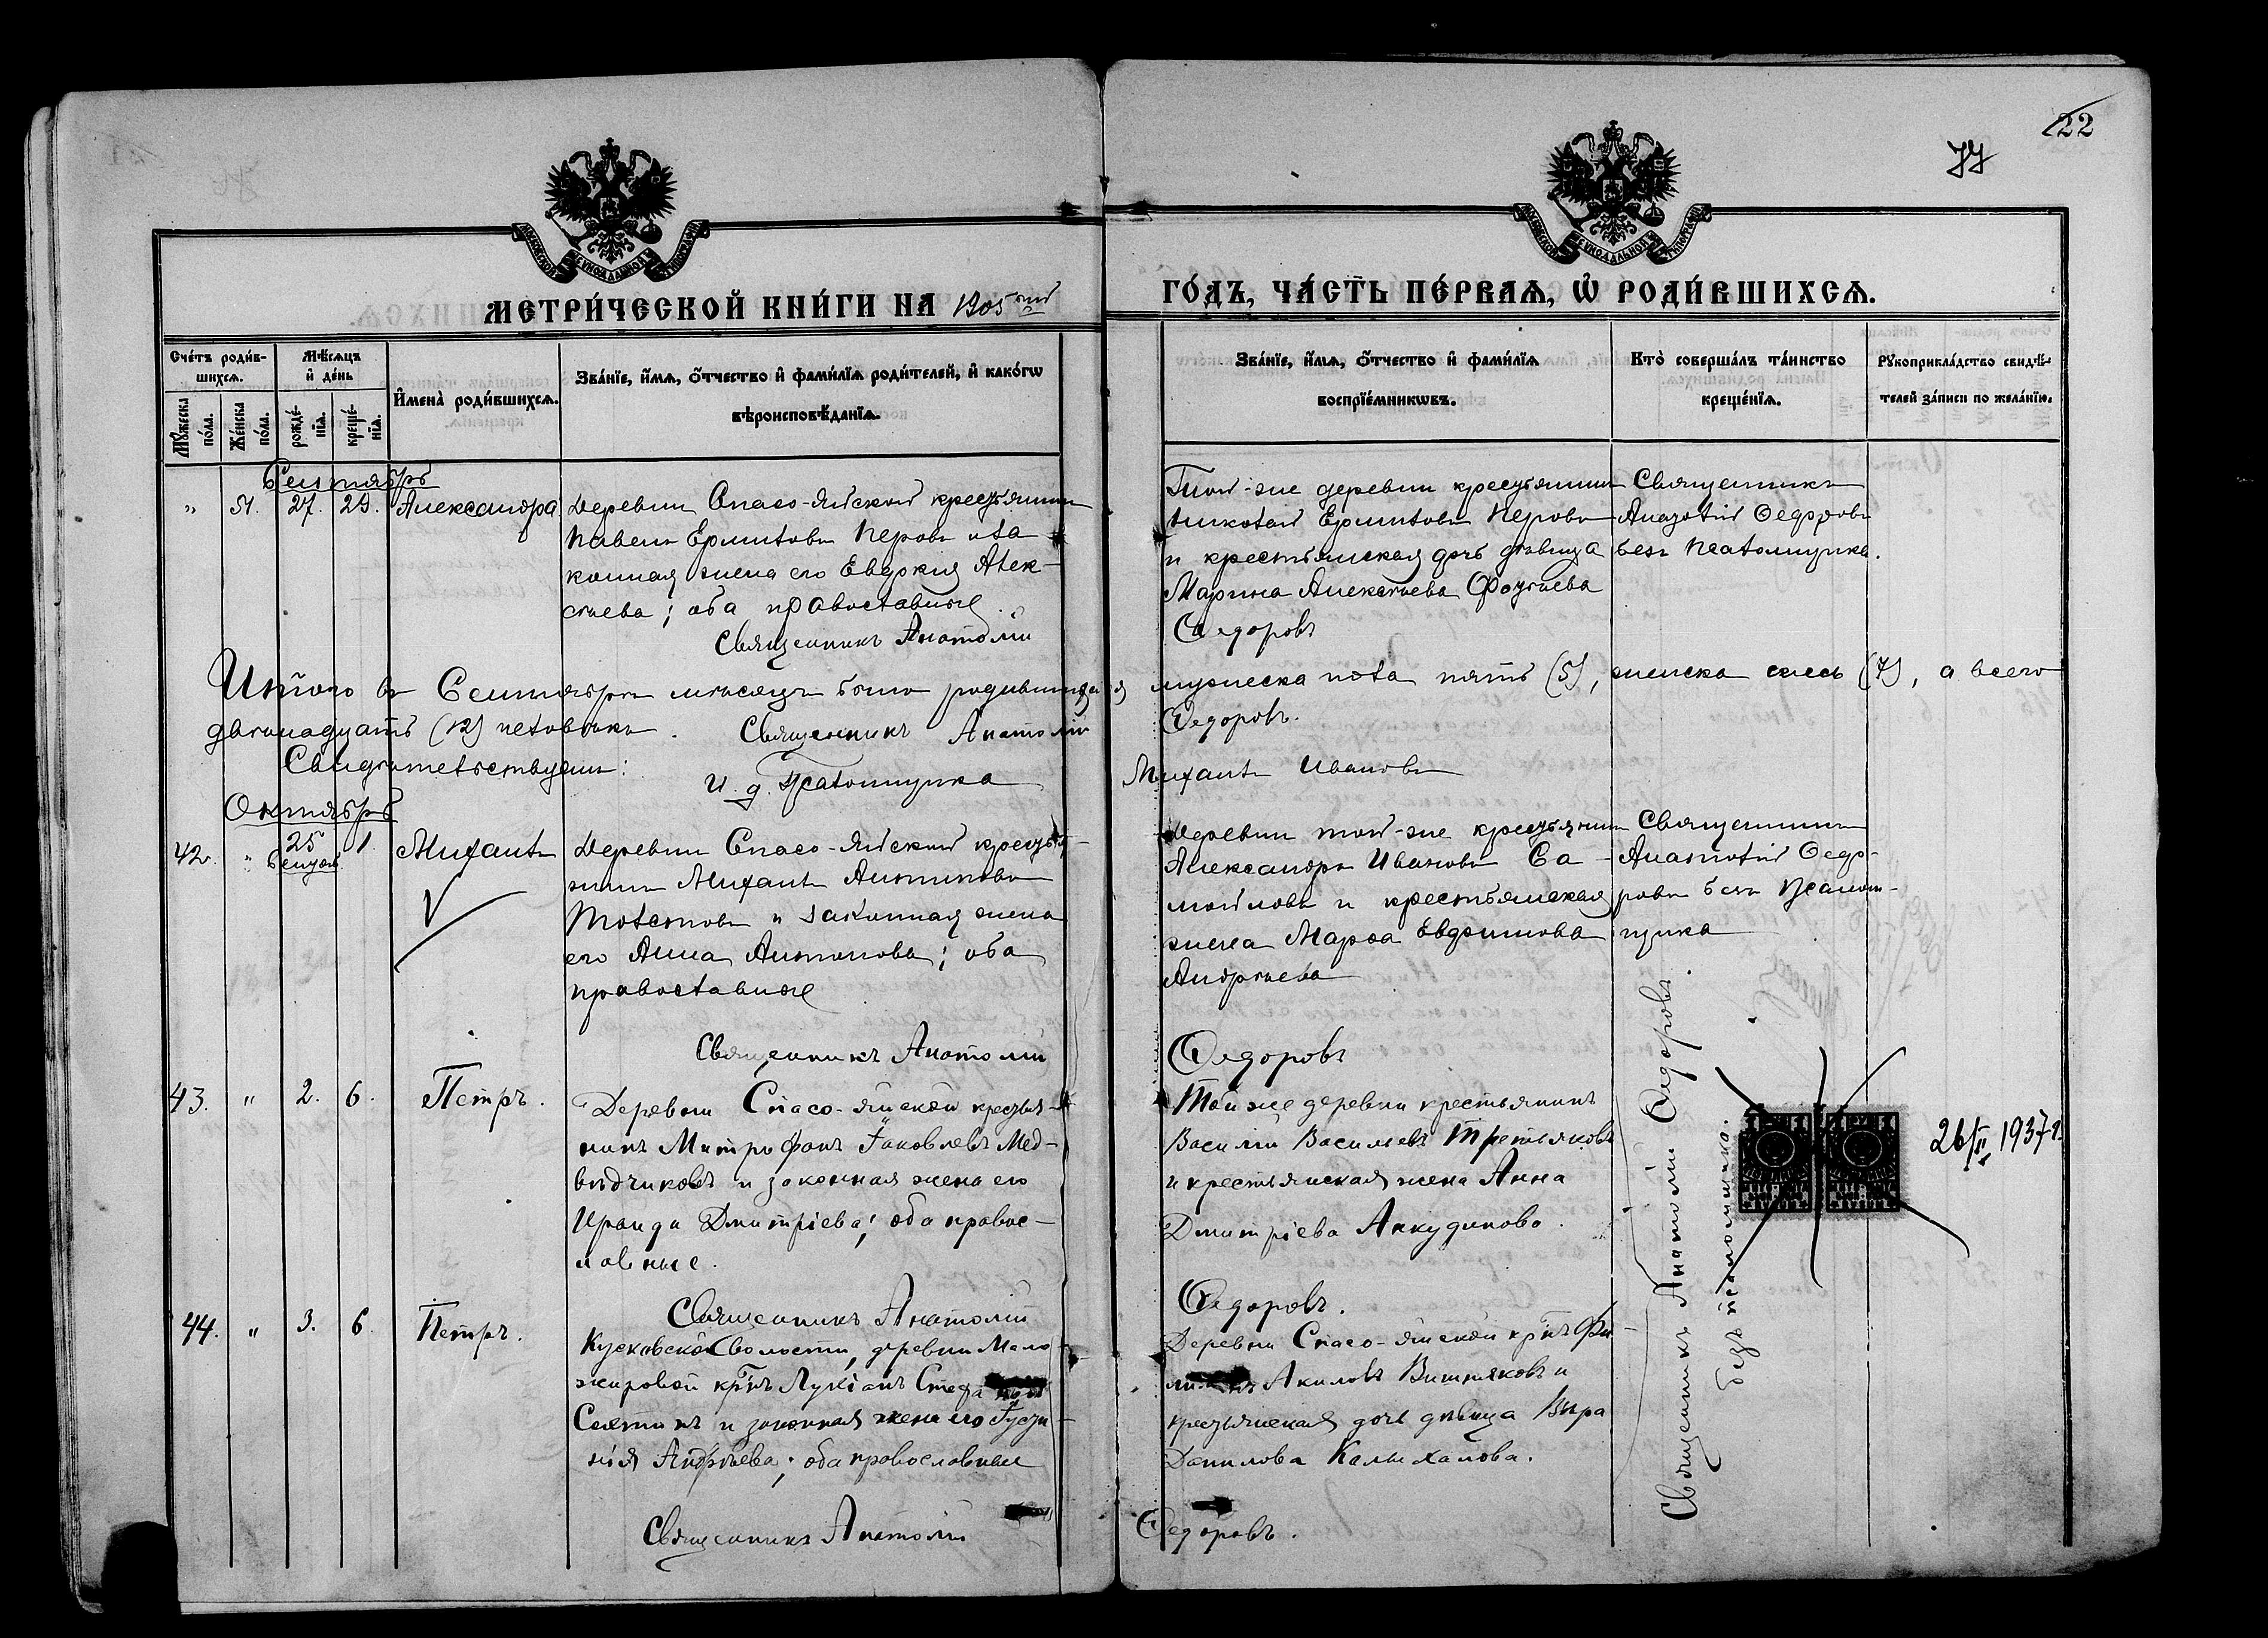 122
77
МЕТРИ́ЧЕСКОЙ КНИ́ГИ НА 1905 ый
ГО́ДЪ, ЧА́СТЬ ПЕ́РВАѦ, Ѡ РОДИ́ВШИХСѦ.
Сче́тъ роди́в-
шихсѧ.
Мѣ́сѧцъ
и҆ де́нь
Мꙋ́жеска по́ла.
Же́нска по́ла.
рожде́-
нїѧ.
креще́-
нїѧ.
И҆мена̀ роди́вшихсѧ.
Зва́нїе, и҆́мѧ, ѻ҆́тчество и҆ фами́лїѧ роди́телей, и҆ како́гѡ
вѣроисповѣ́данїѧ.
Зва́нїе, и҆́мѧ, ѻ҆́тчество и҆ фами́лїѧ
воспрїе́мникѡвъ.
Кто̀ соверша́лъ та́инство
креще́нїѧ.
Рꙋкоприкла́дство свидѣ́-
телей за́писи по жела́нїю.
Сентябрь
" 27. 29. Александра
Деревни Спасо-Яйской крестьянинъ
Павелъ Ермиловъ Перовъ и за
конная жена его Евдокія Алек-
сѣева; оба православные.
Священникъ Анатолій
Той-же деревни крестьянинъ
Николай Ермиловъ Перовъ
и крестьянская дочь дѣвица
Марина Алексѣева
Федоровъ
Священникъ
Анатолій Федоровъ
безъ псаломщика.
Итого въ Сентябрѣ мѣсяцѣ было родившихся мужеска пола пять (5), женска семь (7), а всего
двѣнадцать (12) человѣкъ. Священникъ Анатолій Федоровъ.
Свидѣтельствуемъ: И. д. Псаломщика Михаилъ Ивановъ
Октябрь
42. " 25 Сентяб. 1. Михаилъ
Деревни Спасо-Яйской крестья-
нинъ Михаилъ Антиповъ
Толстовъ и законная жена
его Анна Антонова; оба
православные
Священникъ Анатолій
Деревни той-же крестьянинъ
Александръ Ивановъ Са-
мойловъ и крестьянская
жена Марѳа Евдокимова
Андреева
Федоровъ
Священникъ
Анатолій Федо-
ровъ безъ псалом-
щика
43. " 2. 6. Петръ.
Деревни Спасо-Яйской крестья-
нинъ Митрофанъ Іаковлевъ Мед-
вѣдчиковъ и законная жена его
Ираида Дмитріева; оба правос-
лавные.
Священникъ Анатолій
Той же деревни крестьянинъ
Василій Васильевъ Третьяковъ
и крестьянская жена Анна
Дмитріева Анкудинова.
Федоровъ.
Священникъ Анатолій Федоровъ.
безъ псаломщика.
26/II 1937 г.
44. " 3. 6. Петръ.
Кусковской волости, деревни Мало
жировой кр҃нъ Лукіанъ
и законная жена его
Андреева; оба православные
Священникъ Анатолій
Деревни Спасо-Яйской кр҃нъ Фи-
Акиловъ Вишняковъ и
крестьянская дочь дѣвица Вѣра
Данилова Калыханова.
Федоровъ.